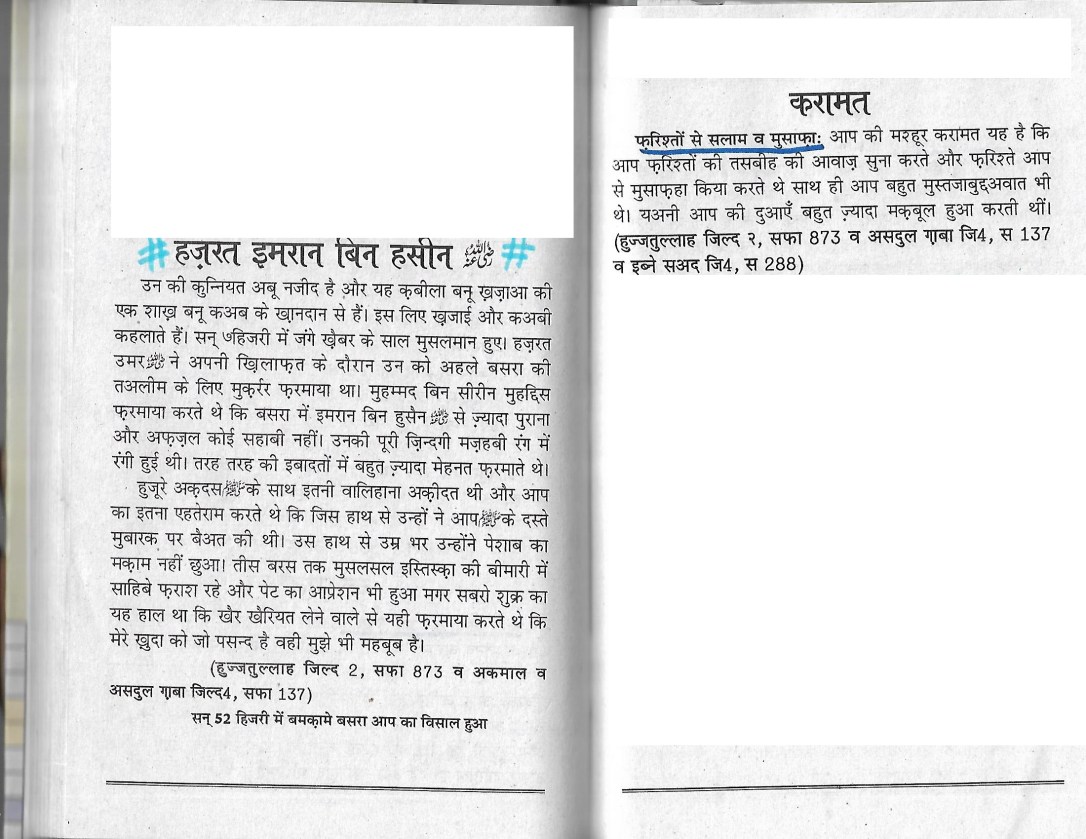 # हज़रत इमरान बिन हसीन رضی اللہ عنہ #
उन की कुन्नियत अबू नजीद है और यह क़बीला बनू ख़ज़ाआ की
एक शाख़ बनू कअब के ख़ानदान से हैं। इस लिए ख़जाई और कअबी
कहलाते हैं। सन् ७हिजरी में जंगे ख़ैबर के साल मुसलमान हुए। हज़रत
उमर ؓ ने अपनी ख़िलाफ़त के दौरान उन को अहले बसरा की
तअलीम के लिए मुक़र्रर फ़रमाया था। मुहम्मद बिन सीरीन मुहद्दिस
फ़रमाया करते थे कि बसरा में इमरान बिन हुसैन ؓ से ज़्यादा पुराना
और अफ़ज़ल कोई सहाबी नहीं। उनकी पूरी ज़िन्दगी मज़हबी रंग में
रंगी हुई थी। तरह तरह की इबादतों में बहुत ज़्यादा मेहनत फ़रमाते थे।
हुजूरे अक़दस ﷺ के साथ इतनी वालिहाना अक़ीदत थी और आप
का इतना एहतेराम करते थे कि जिस हाथ से उन्हों ने आप ﷺ के दस्ते
मुबारक पर बैअत की थी। उस हाथ से उम्र भर उन्होंने पेशाब का
मक़ाम नहीं छुआ। तीस बरस तक मुसलसल इस्तिस्क़ा की बीमारी में
साहिबे फ़राश रहे और पेट का आप्रेशन भी हुआ मगर सबरो शुक्र का
यह हाल था कि खैर खैरियत लेने वाले से यही फ़रमाया करते थे कि
मेरे ख़ुदा को जो पसन्द है वही मुझे भी महबूब है।
(हुज्जतुल्लाह जिल्द 2, सफा 873 व अकमाल व
असदुल ग़ाबा जिल्द4, सफा 137)
सन् 52 हिजरी में बमक़ामे बसरा आप का विसाल हुआ
करामत
फ़रिश्तों से सलाम व मुसाफ़ाः आप की मश्हूर करामत यह है कि
आप फ़रिश्तों की तसबीह की आवाज़ सुना करते और फ़रिश्ते आप
से मुसाफ़हा किया करते थे साथ ही आप बहुत मुस्तजाबुद्दअवात भी
थे। यअनी आप की दुआएँ बहुत ज़्यादा मक़बूल हुआ करती थीं।
(हुज्जतुल्लाह जिल्द २, सफा 873 व असदुल ग़ाबा जि4, स 137
व इब्ने सअद जि4, स 288)